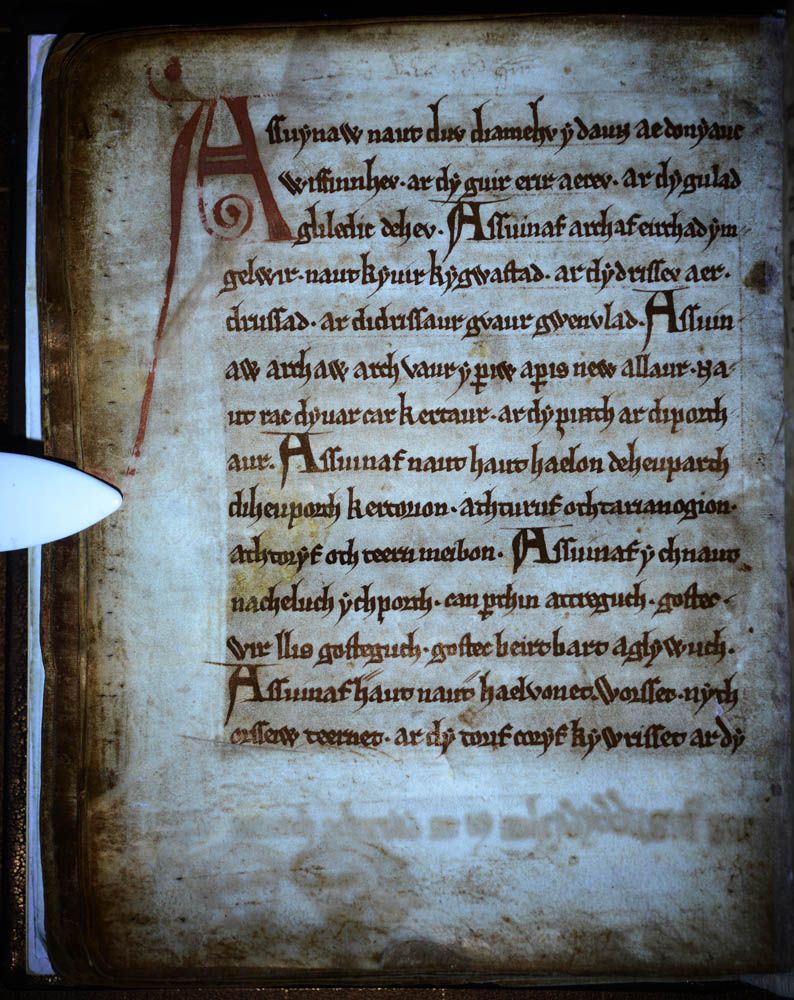 Assuynaw naut duv diamehv y daun ae donyauc
wiffinnhev · ar dy guir erir aerev · ar dy gulad
gliledic dehev · Assuinaf archaf eirchad ym
gelwir · naut kyuir kygwastad · ar dy drissev aer ·
drussad · ar didrissaur gvaur gwenvlad · Assuin
aw archaw arch vaur y periw aperis new a llaur · na
ut rac dy uar car kertaur · ar dy pirth ar diporth
aur · Assuinaf naut haut haelon deheuparth
diheuporth kertorion · ath turuf oth tarianogion ·
ath toryf oth teernmeibon · Assuinaf ych naut
nacheluch ych porth · can perthin attreguch · gostec
wir llis gosteguch · gostec beirt bart a glywuch ·
Assuinaf haut naut haelvonet. Worsset · nyth
orssetw teernet · ar dy toruf toryf kywrisset ar dy